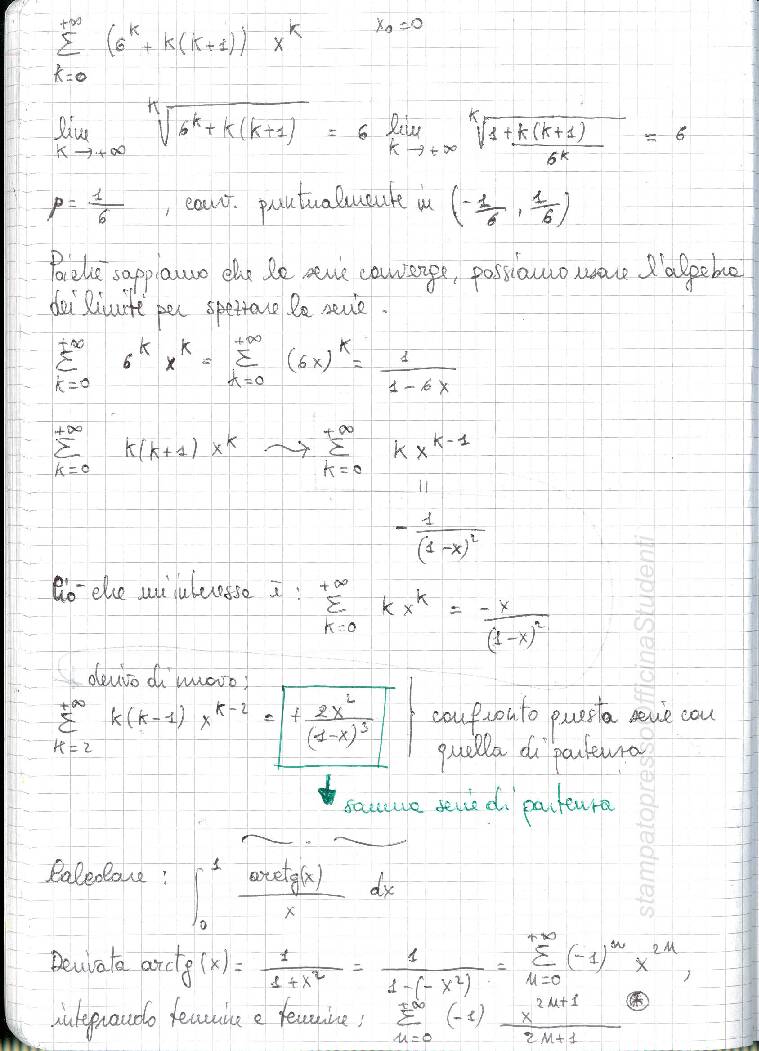 +∞ Σ k=0 (6^k + k(k+1)) x^k    x₀=0
lim k→+∞ k√(6^k + k(k+1)) = 6 lim k→+∞ k√(1 + k(k+1)/6^k) = 6
ρ = 1/6 , conv. puntualmente in (-1/6 , 1/6)
Poiché sappiamo che la serie converge, possiamo usare l'algebra
dei limiti per spezzare la serie.
+∞ Σ k=0 6^k x^k = +∞ Σ k=0 (6x)^k = 1/(1-6x)
+∞ Σ k=0 k(k+1) x^k ⤳ +∞ Σ k=0 k x^(k-1)
=
- 1/(1-x)²
Ciò che mi interessa è : +∞ Σ k=0 k x^k = -x/(1-x)²
derivo di nuovo;
+∞ Σ k=2 k(k-1) x^(k-2) = + 2x²/(1-x)³ } confronto questa serie con
quella di partenza
somma serie di partenza
Calcolare : ∫₀¹ arctg(x)/x dx
Derivata arctg(x) = 1/(1+x²) = 1/(1-(-x²)) = +∞ Σ n=0 (-1)^n x^(2n) ,
integrando termine e termine; +∞ Σ n=0 (-1) x^(2n+1)/(2n+1) ⊛
stampatopressoOfficinaStudenti